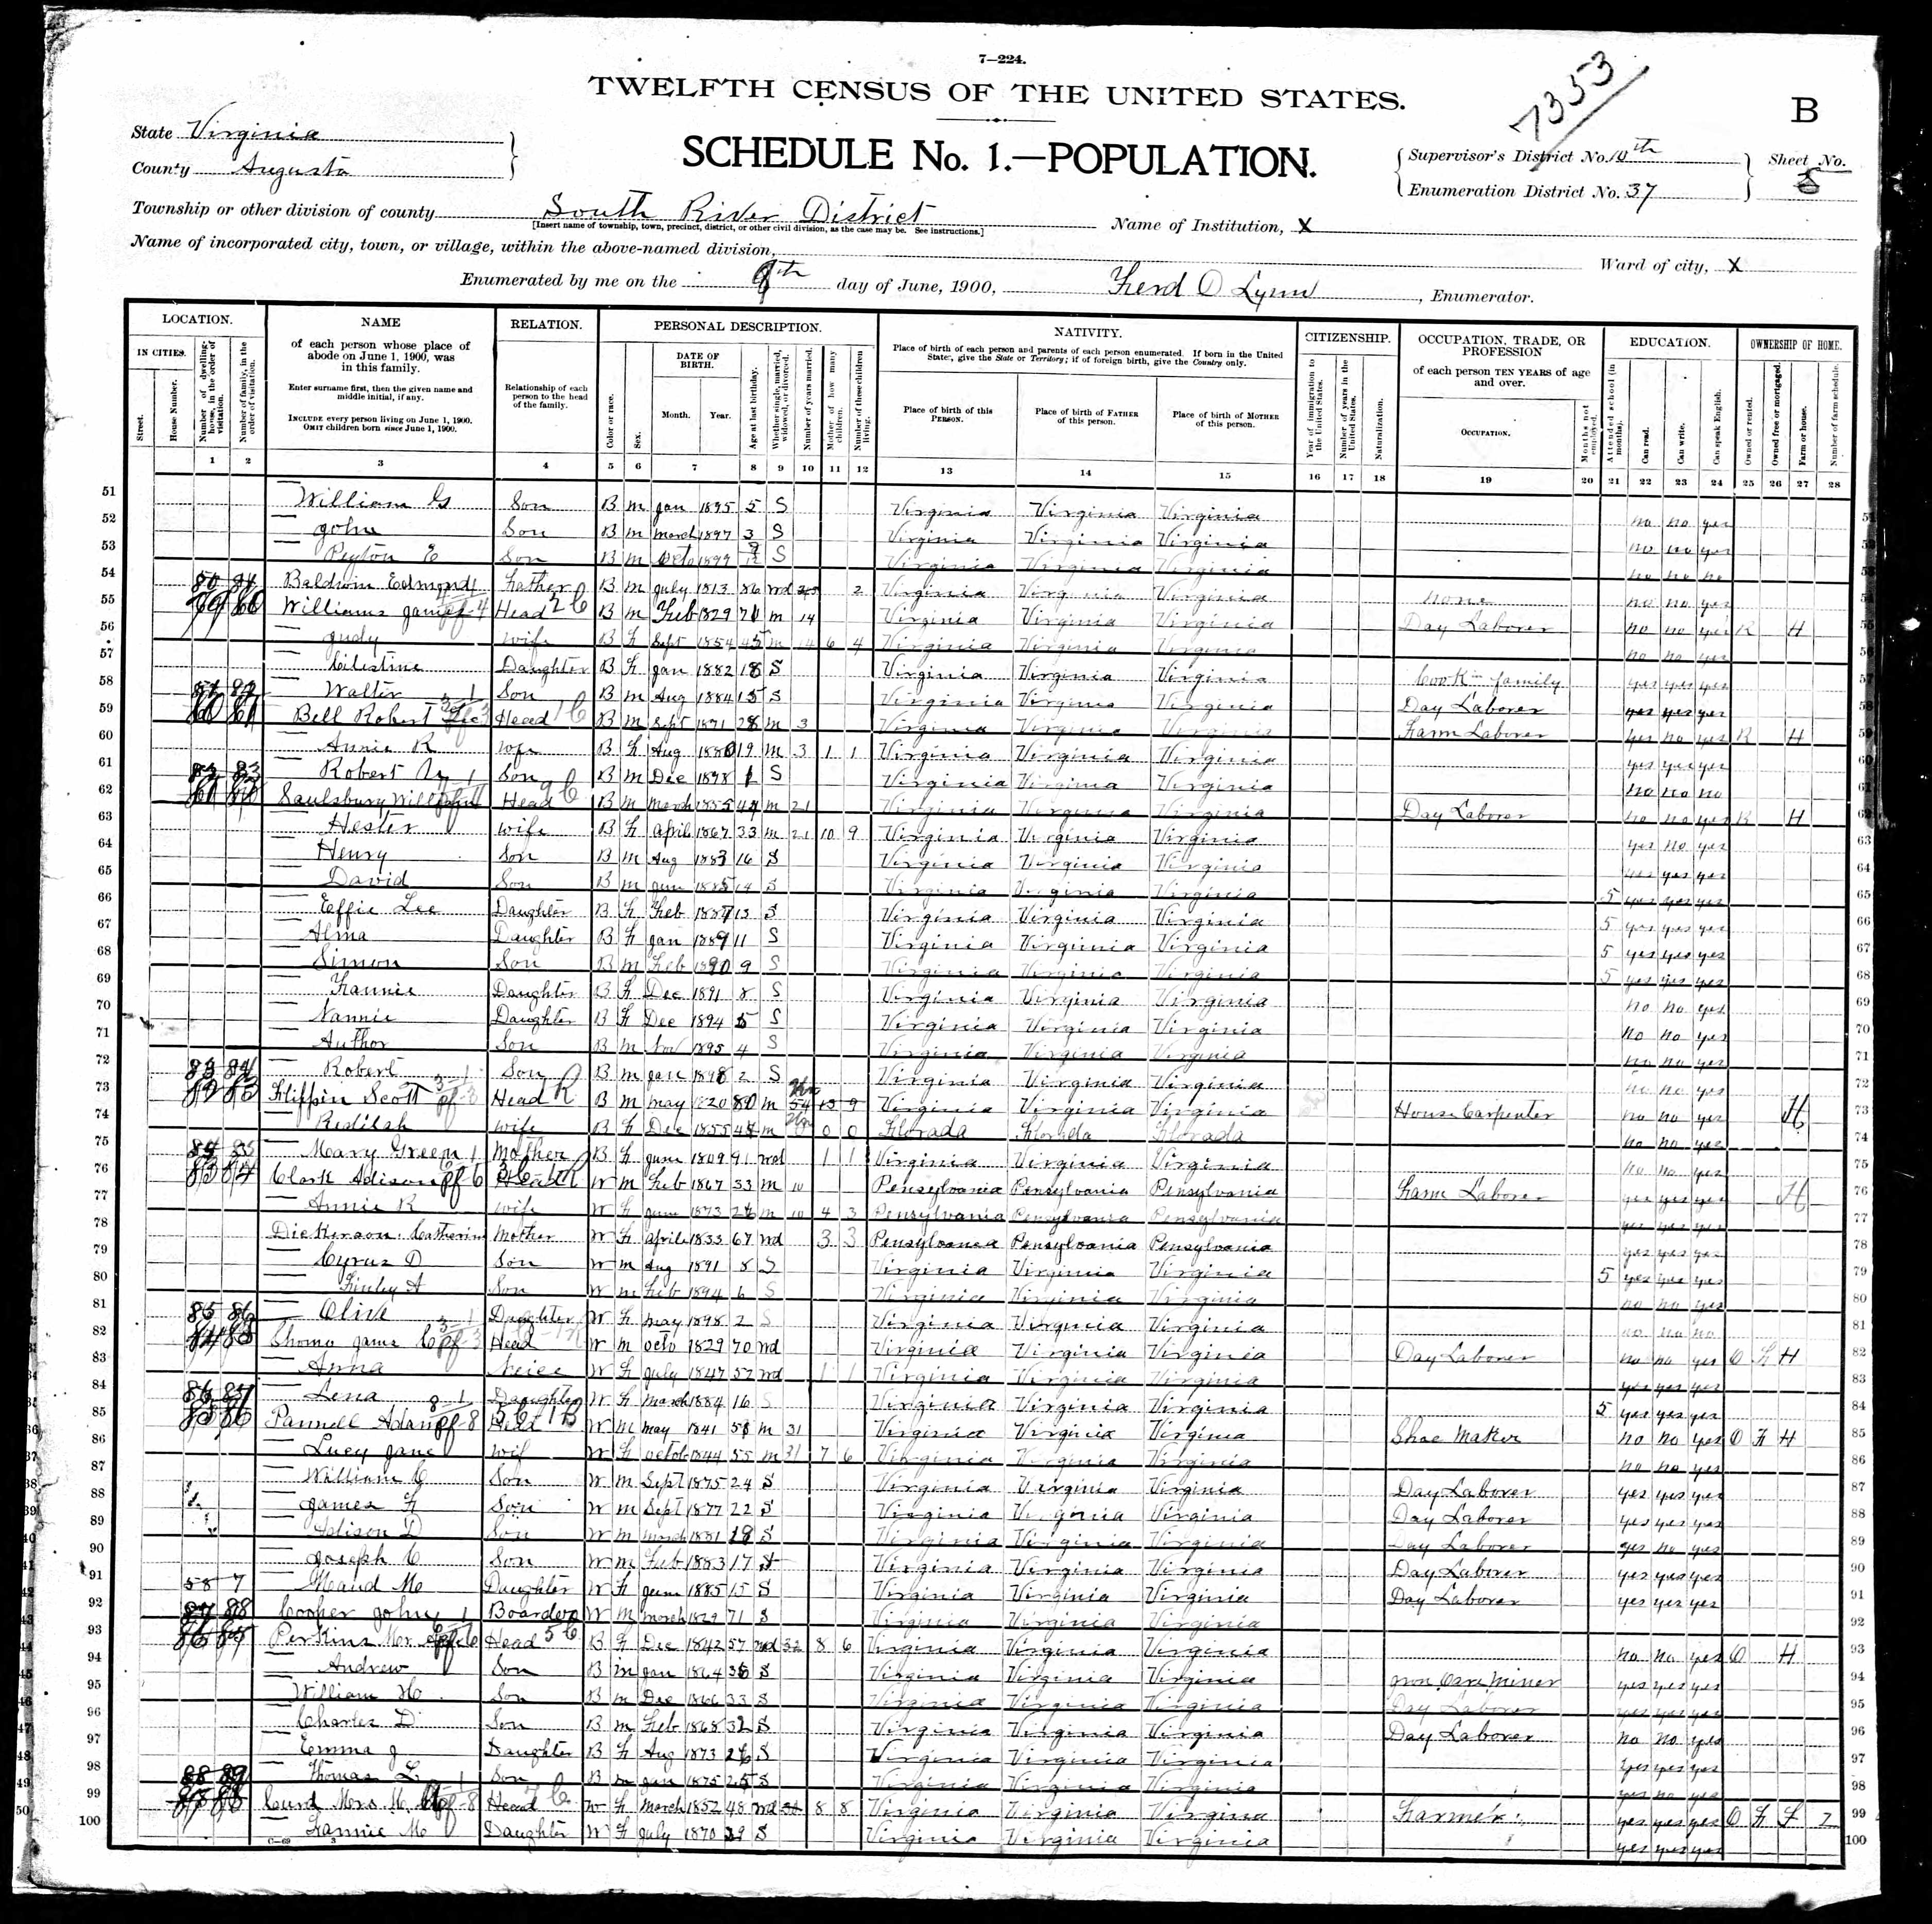 7—224.
TWELFTH CENSUS OF THE UNITED STATES.
7353
B
State Virginia
County Augusta
SCHEDULE No. 1.—POPULATION.
Supervisor's District No. 10th
Enumeration District No. 37
Sheet No.
8
Township or other division of county South River District
[Insert name of township, town, precinct, district, or other civil division, as the case may be. See instructions.]
Name of Institution, X
Name of incorporated city, town, or village, within the above-named division,
Ward of city, X
Enumerated by me on the 9th day of June, 1900, Ferd O Lynn, Enumerator.
LOCATION. NAME RELATION. PERSONAL DESCRIPTION. NATIVITY. CITIZENSHIP. OCCUPATION, TRADE, OR PROFESSION EDUCATION. OWNERSHIP OF HOME.
IN CITIES. Street. House Number. Number of dwelling-house, in the order of visitation. Number of family, in the order of visitation.
of each person whose place of abode on June 1, 1900, was in this family.
Enter surname first, then the given name and middle initial, if any.
INCLUDE every person living on June 1, 1900. OMIT children born since June 1, 1900.
Relationship of each person to the head of the family.
Color or race. Sex. DATE OF BIRTH. Month. Year. Age at last birthday. Whether single, married, widowed, or divorced. Number of years married. Mother of how many children. Number of these children living.
Place of birth of each person and parents of each person enumerated. If born in the United States, give the State or Territory; if of foreign birth, give the Country only.
Place of birth of this PERSON. Place of birth of FATHER of this person. Place of birth of MOTHER of this person.
Year of immigration to the United States. Number of years in the United States. Naturalization.
of each person TEN YEARS of age and over.
OCCUPATION. Months not employed.
Attended school (in months). Can read. Can write. Can speak English.
Owned or rented. Owned free or mortgaged. Farm or house. Number of farm schedule.
1 2 3 4 5 6 7 8 9 10 11 12 13 14 15 16 17 18 19 20 21 22 23 24 25 26 27 28
51 William G Son B m Jan 1895 5 S Virginia Virginia Virginia no no yes
52 John Son B m March 1897 3 S Virginia Virginia Virginia no no yes
53 Peyton E Son B m Octo 1899 S Virginia Virginia Virginia no no no
54 Baldwin Edmond Father B m July 1813 86 wd 2 Virginia Virginia Virginia none no no yes
55 Williams James Head B m Feb 1829 71 m 14 Virginia Virginia Virginia Day Laborer no no yes R H
56 Judy wife B F Sept 1854 45 m 14 6 4 Virginia Virginia Virginia no no yes
57 Cilestine Daughter B F Jan 1882 18 S Virginia Virginia Virginia Cook family yes yes yes
58 Walter Son B m Aug 1884 15 S Virginia Virginia Virginia Day Laborer yes yes yes
59 Bell Robert Lee Head B m Sept 1871 28 m 3 Virginia Virginia Virginia Farm Laborer yes no yes R H
60 Annie R wife B F Aug 1880 19 m 3 1 1 Virginia Virginia Virginia yes yes yes
61 Robert Son B m Dec 1898 1 S Virginia Virginia Virginia no no no
62 Saulsbury Will Head B m March 1855 m 21 Virginia Virginia Virginia Day Laborer no no yes R H
63 Hester wife B F April 1867 33 m 21 10 9 Virginia Virginia Virginia yes no yes
64 Henry Son B m Aug 1883 16 S Virginia Virginia Virginia yes yes yes
65 David Son B m June 1885 14 S Virginia Virginia Virginia 5 yes yes yes
66 Effie Lee Daughter B F Feb 1887 13 S Virginia Virginia Virginia 5 yes yes yes
67 Alma Daughter B F Jan 1889 11 S Virginia Virginia Virginia 5 yes yes yes
68 Simon Son B m Feb 1890 9 S Virginia Virginia Virginia 5 yes yes yes
69 Fannie Daughter B F Dec 1891 8 S Virginia Virginia Virginia no no yes
70 Nannie Daughter B F Dec 1894 5 S Virginia Virginia Virginia no no yes
71 Author Son B m Nov 1895 4 S Virginia Virginia Virginia no no yes
72 Robert Son B m Jan 1898 2 S Virginia Virginia Virginia no no yes
73 Flippin Scott Head B m May 1820 80 m 54 13 9 Virginia Virginia Virginia House Carpenter no no yes H
74 wife B F Dec 1855 m 0 0 Florada Florada Florada no no yes
75 Mary Green Mother B F June 1809 91 wd 1 1 Virginia Virginia Virginia no no yes
76 Clark Adison Head W m Feb 1867 33 m 10 Pensylvania Pensylvania Pensylvania Farm Laborer yes yes yes H
77 Annie R wife W F June 1873 26 m 10 4 3 Pensylvania Pensylvania Pensylvania yes yes yes
78 Dickerson Catherine Mother W F April 1833 67 wd 3 3 Pensylvania Pensylvania Pensylvania yes yes yes
79 Cyrus D Son W m Aug 1891 8 S Virginia Virginia Virginia 5 yes yes yes
80 Finley A Son W m Feb 1894 6 S Virginia Virginia Virginia no no yes
81 Olive Daughter W F May 1898 2 S Virginia Virginia Virginia no no no
82 Shomo James C Head W m Octo 1829 70 wd Virginia Virginia Virginia Day Laborer no no yes O F H
83 Anna Neice W F July 1847 52 wd 1 1 Virginia Virginia Virginia yes yes yes
84 Lena Daughter W F March 1884 16 S Virginia Virginia Virginia 5 yes yes yes
85 Pannell Adam Head W m May 1841 58 m 31 Virginia Virginia Virginia Shoe Maker no no yes O F H
86 Lucy Jane wif W F Octob 1844 55 m 31 7 6 Virginia Virginia Virginia no no yes
87 William C Son W m Sept 1875 24 S Virginia Virginia Virginia Day Laborer yes yes yes
88 James F Son W m Sept 1877 22 S Virginia Virginia Virginia Day Laborer yes yes yes
89 Adison D Son W m March 1881 18 S Virginia Virginia Virginia Day Laborer yes no yes
90 Joseph C Son W m Feb 1883 17 S Virginia Virginia Virginia Day Laborer yes yes yes
91 Maud M Daughter W F June 1885 15 S Virginia Virginia Virginia Day Laborer yes yes yes
92 Cooper John Boarder W m March 1829 71 S Virginia Virginia Virginia
93 Perkins Mrs Head B F Dec 1842 57 wd 32 8 6 Virginia Virginia Virginia no no yes O H
94 Andrew Son B m Jan 1864 36 S Virginia Virginia Virginia Iron Oare Miner yes yes yes
95 William H Son B m Dec 1866 33 S Virginia Virginia Virginia Day Laborer yes yes yes
96 Charles D Son B m Feb 1868 32 S Virginia Virginia Virginia Day Laborer no no yes
97 Emma J Daughter B F Aug 1873 26 S Virginia Virginia Virginia yes yes yes
98 Thomas L Son B m Jan 1875 25 S Virginia Virginia Virginia yes no yes
99 Curd Mrs M Head W F March 1852 48 wd 8 8 Virginia Virginia Virginia Farmer yes yes yes O F F 7
100 Fannie M Daughter W F July 1870 29 S Virginia Virginia Virginia yes yes yes